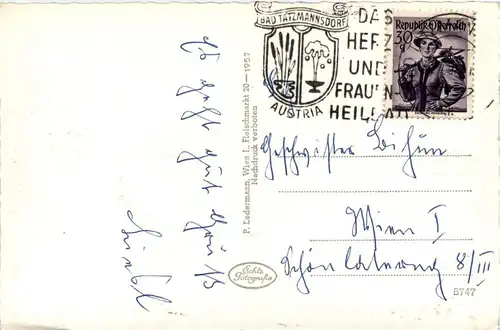 BAD TATZMANNSDORF
AUSTRIA
DAS
HERZ
UND
FRAUEN-
HEILBAD
Republik Österreich
30 g
Es geht gut Gruß
P. Ledermann, Wien I., Fleischmarkt 20 — 1957
Nachdruck verboten
Geschwister
Wien I
Schönlaterng 8/III
Echte
Fotografie
5747